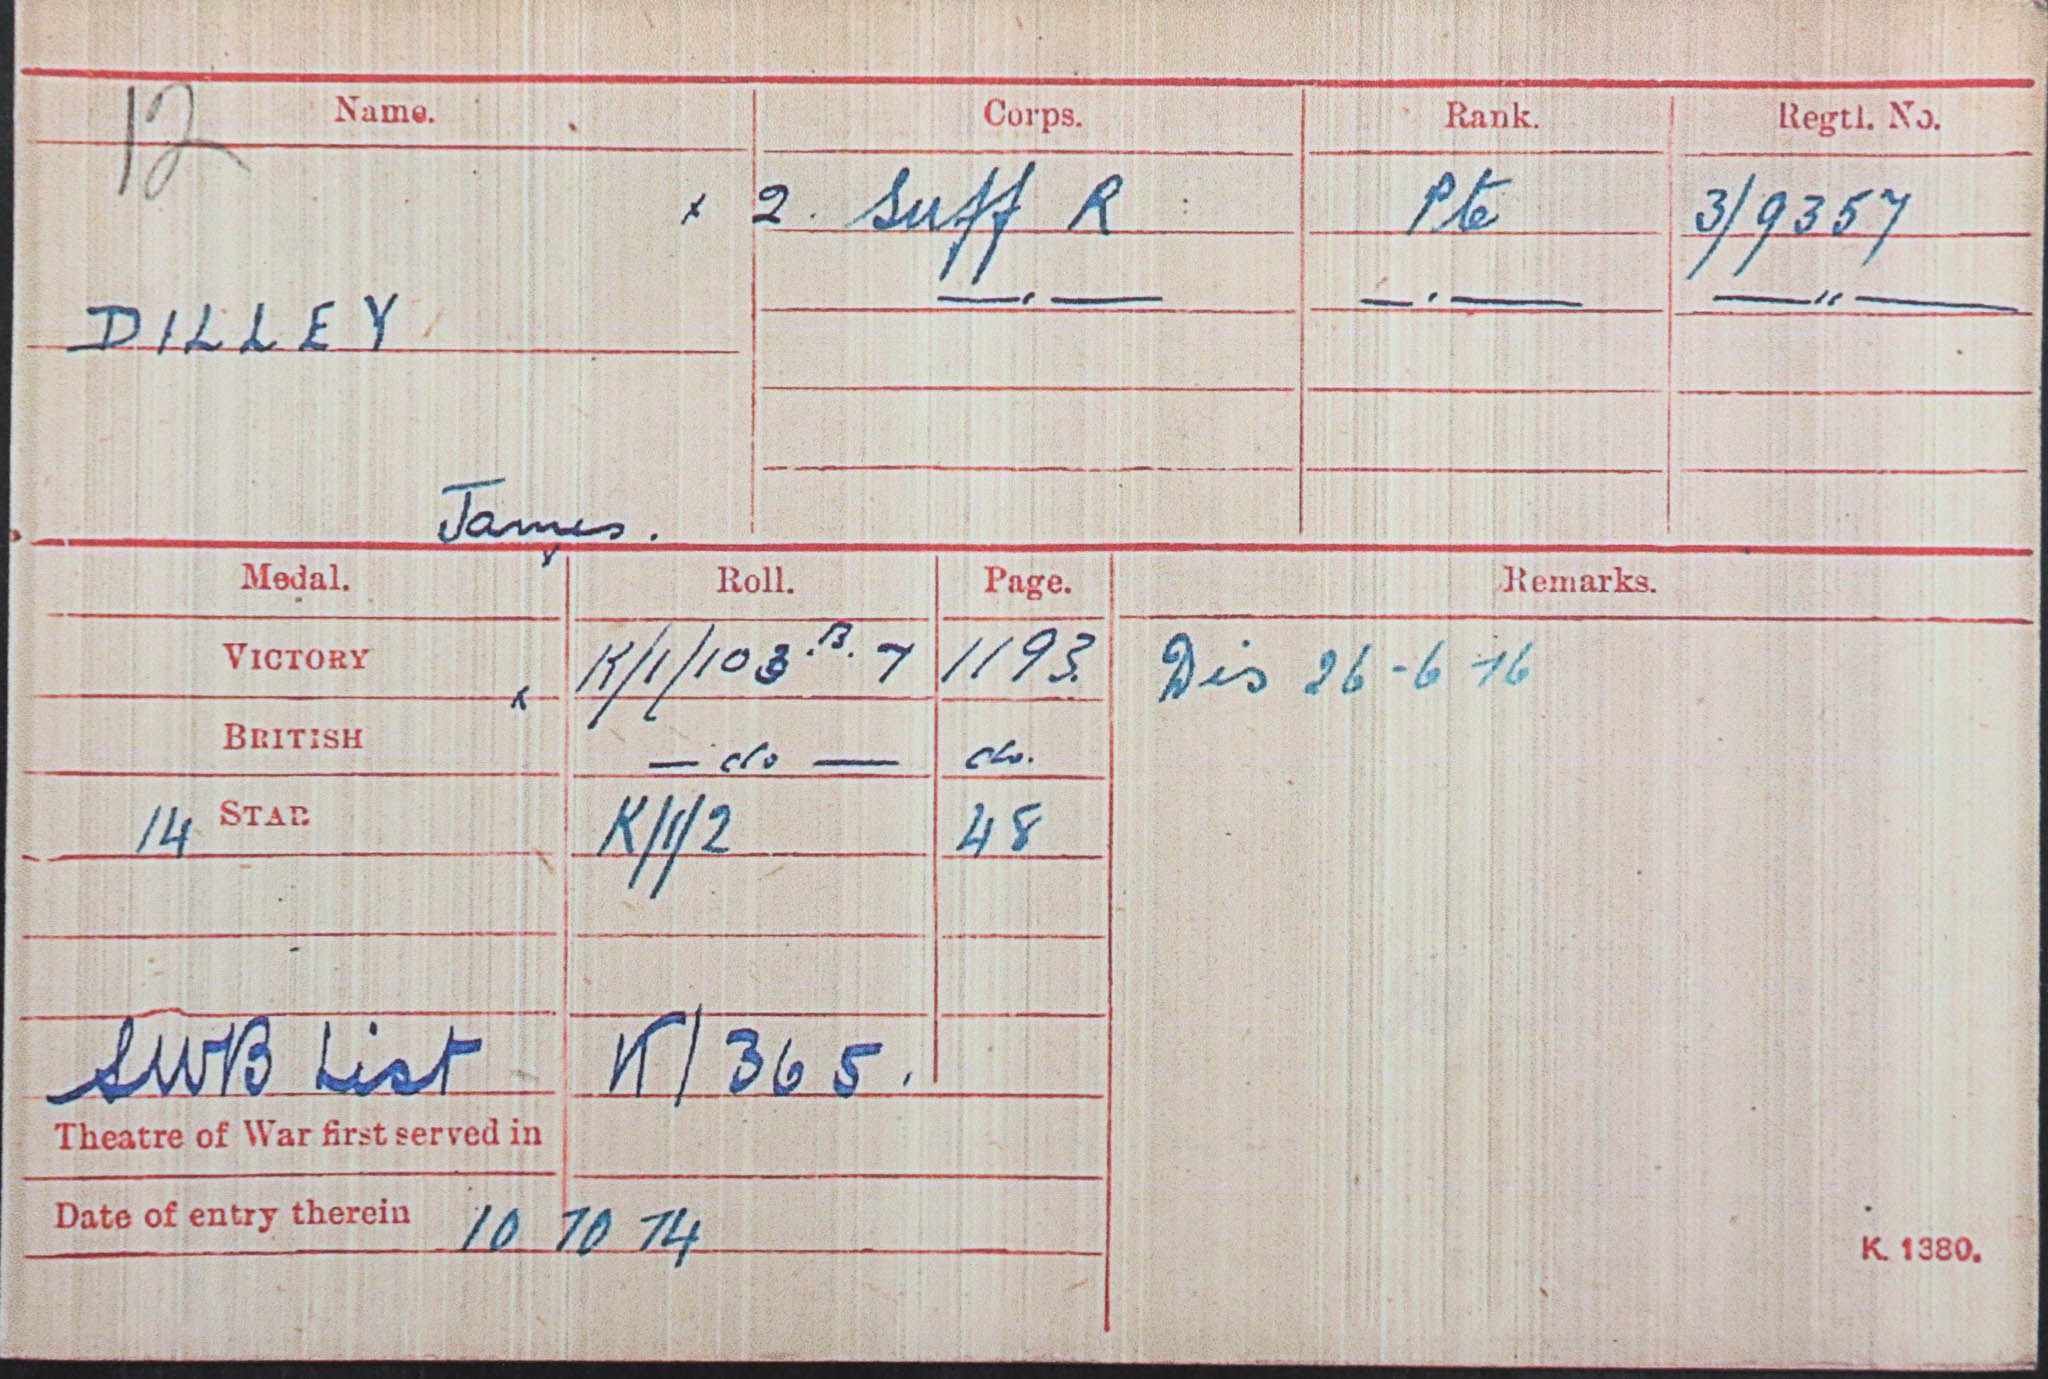 12
Name. Corps. Rank. Regtl. No.
x 2. Suff R Pte 3/9357
DILLEY —"— —"— —"—
James.
Medal. Roll. Page. Remarks.
VICTORY K/1/103.B.7 1193. Dis 26-6-16
x
BRITISH — do — do.
14 STAR K/1/2 48
SWB List K/365.
Theatre of War first served in
Date of entry therein 10 10 14
K. 1380.